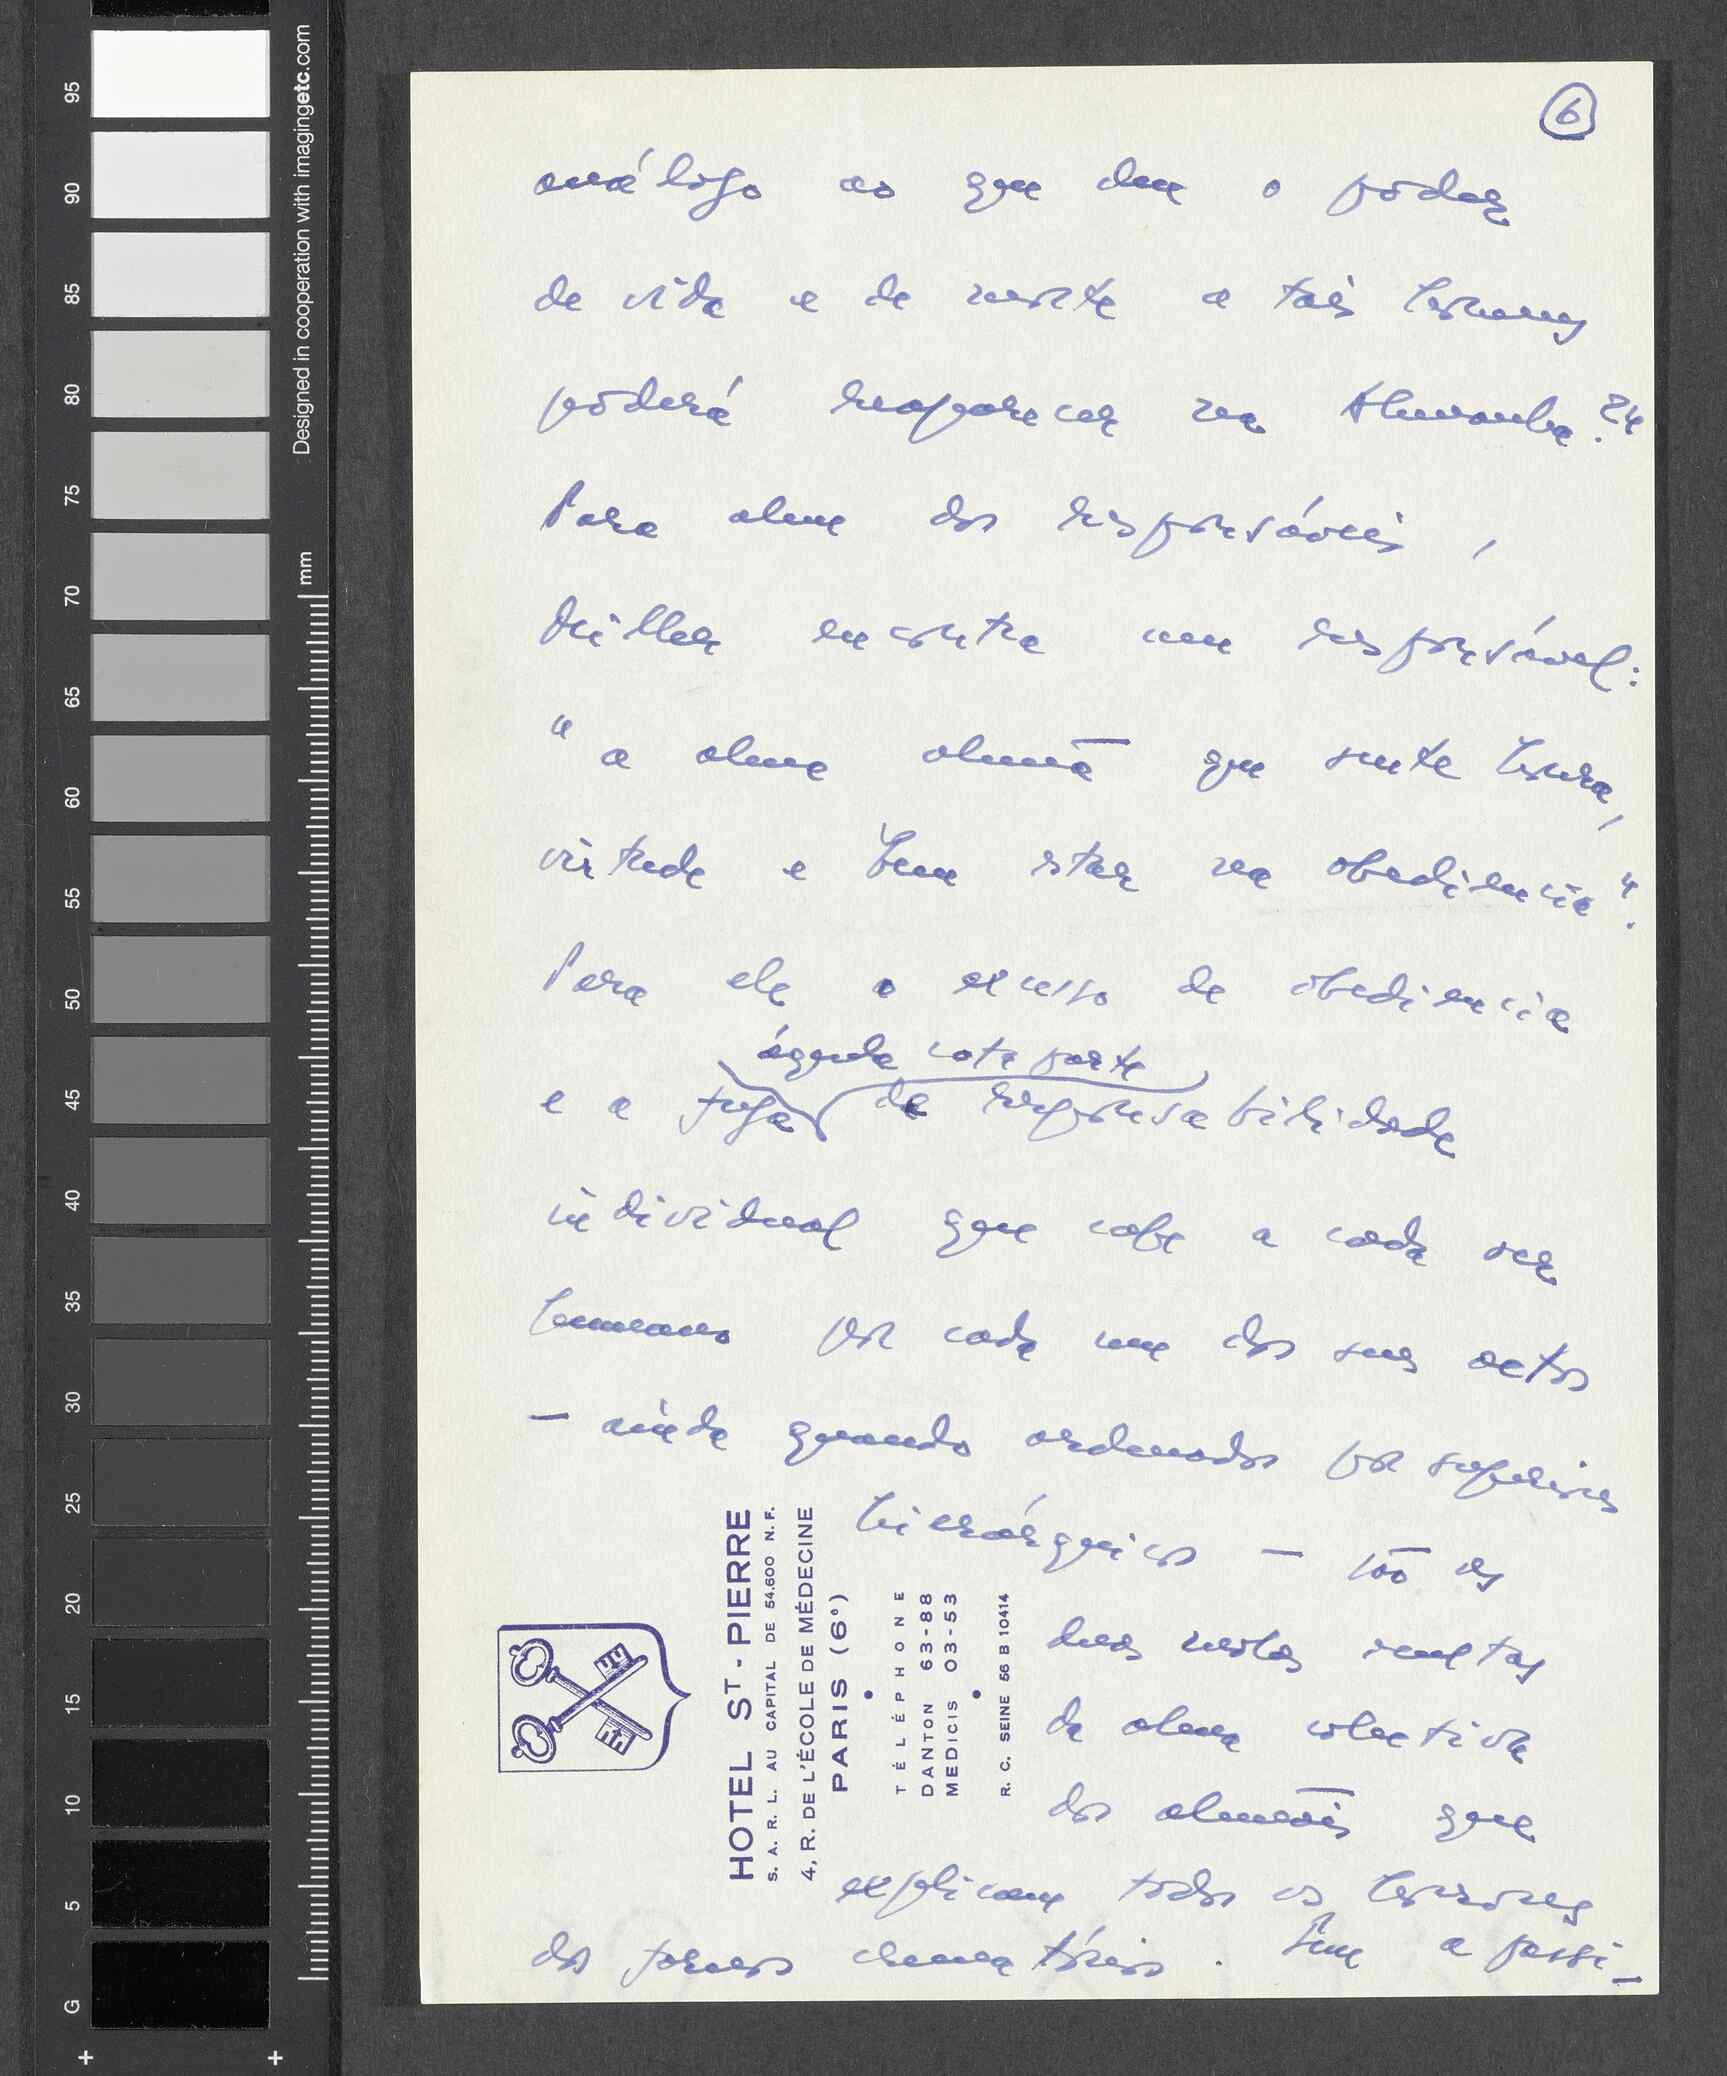 6
análogo ao que deu o poder
de vida e de morte a tais homens
poderá reaparecer na Alemanha?"
Para alem dos responsáveis,
Miller encontra um responsável:
"a alma alemã que sente honra,
virtude e bem estar na obediencia".
Para ele o excesso de obediencia
áquela cota parte
e a fuga de responsabilidade
individual que cabe a cada ser
humano por cada um dos seus actos
— ainda quando ordenados por superiores
hierárquicos — são as
duas molas
da alma colectiva
dos alemães que
explicam todos os horrores
dos fornos crematórios. Sem a passi-
HOTEL ST-PIERRE
S. A. R. L. AU CAPITAL DE 54.600 N. F.
4, R. DE L'ÉCOLE DE MÉDECINE
PARIS (6e)
TÉLÉPHONE
DANTON 63-88
MEDICIS 03-53
R. C. SEINE 56 B 10414
Designed in cooperation with imagingetc.com
mm
95
90
85
80
75
70
65
60
55
50
45
40
35
30
25
20
15
10
5
G